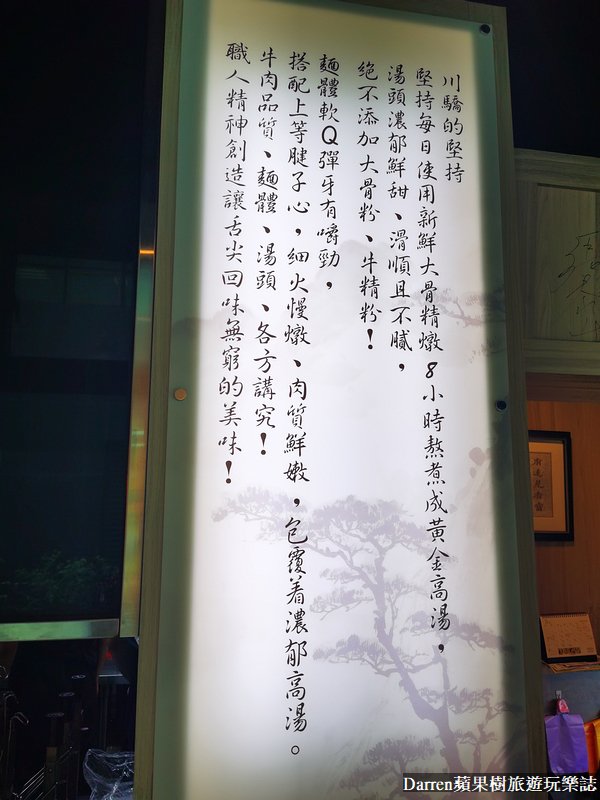 川驕的堅持
堅持每日使用新鮮大骨精燉8小時熬煮成黃金高湯，
湯頭濃郁鮮甜、滑順且不膩，
絕不添加大骨粉、牛精粉！
麵體軟Q彈牙有嚼勁，
搭配上等腱子心，細火慢燉、肉質鮮嫩，包覆着濃郁高湯。
牛肉品質、麵體、湯頭、各方講究！
職人精神創造讓舌尖回味無窮的美味！
Darren蘋果樹旅遊玩樂誌